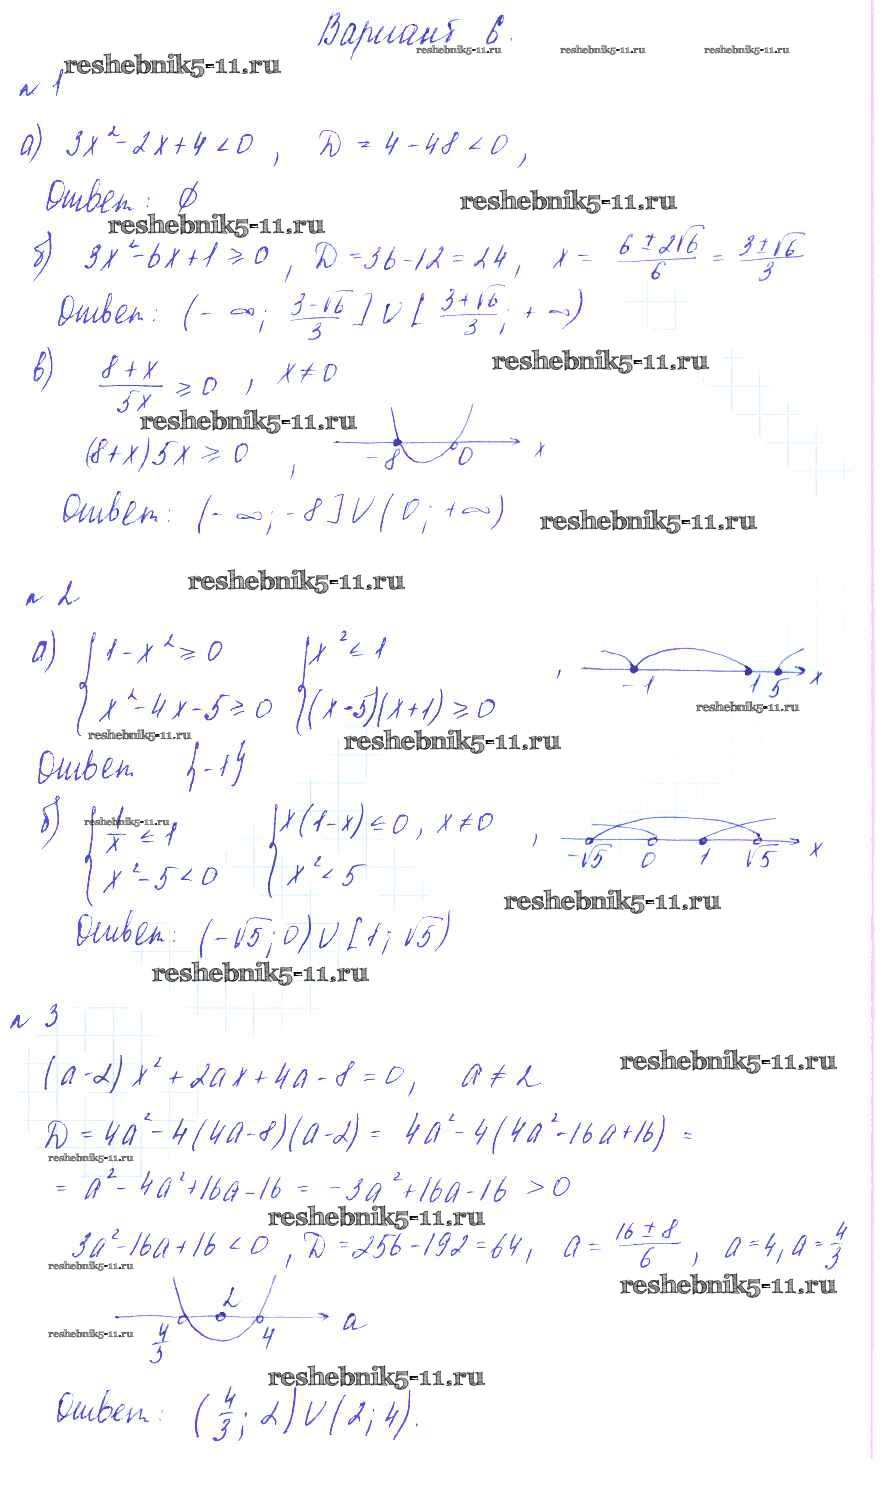 Вариант 6.
reshebnik5-11.ru reshebnik5-11.ru reshebnik5-11.ru
reshebnik5-11.ru
№ 1
а) 3x² - 2x + 4 < 0 , D = 4 - 48 < 0 ,
Ответ: ∅
reshebnik5-11.ru
reshebnik5-11.ru
б) 3x² - 6x + 1 ≥ 0 , D = 36 - 12 = 24 , x = (6 ± 2√6)/6 = (3 ± √6)/3
Ответ: (-∞; (3-√6)/3] ∪ [(3+√6)/3; +∞)
в) (8+x)/5x ≥ 0 , x ≠ 0
reshebnik5-11.ru
reshebnik5-11.ru
(8+x)5x ≥ 0 , -8 0 x
Ответ: (-∞; -8] ∪ (0; +∞)
reshebnik5-11.ru
reshebnik5-11.ru
№ 2
а) { 1 - x² ≥ 0 { x² ≤ 1 , -1 1 5 x
x² - 4x - 5 ≥ 0 (x-5)(x+1) ≥ 0
reshebnik5-11.ru
reshebnik5-11.ru
reshebnik5-11.ru
Ответ {-1}
reshebnik5-11.ru
б) { 1/x ≤ 1 { x(1-x) ≤ 0 , x ≠ 0 , -√5 0 1 √5 x
x² - 5 < 0 x² < 5
reshebnik5-11.ru
Ответ: (-√5; 0) ∪ [1; √5)
reshebnik5-11.ru
№ 3
reshebnik5-11.ru
(a-2)x² + 2ax + 4a - 8 = 0, a ≠ 2
D = 4a² - 4(4a-8)(a-2) = 4a² - 4(4a² - 16a + 16) =
reshebnik5-11.ru
= a² - 4a² + 16a - 16 = -3a² + 16a - 16 > 0
reshebnik5-11.ru
3a² - 16a + 16 < 0 , D = 256 - 192 = 64 , a = (16 ± 8)/6 , a = 4, a = 4/3
reshebnik5-11.ru
reshebnik5-11.ru
4/3 2 4 a
reshebnik5-11.ru
reshebnik5-11.ru
Ответ: (4/3; 2) ∪ (2; 4).